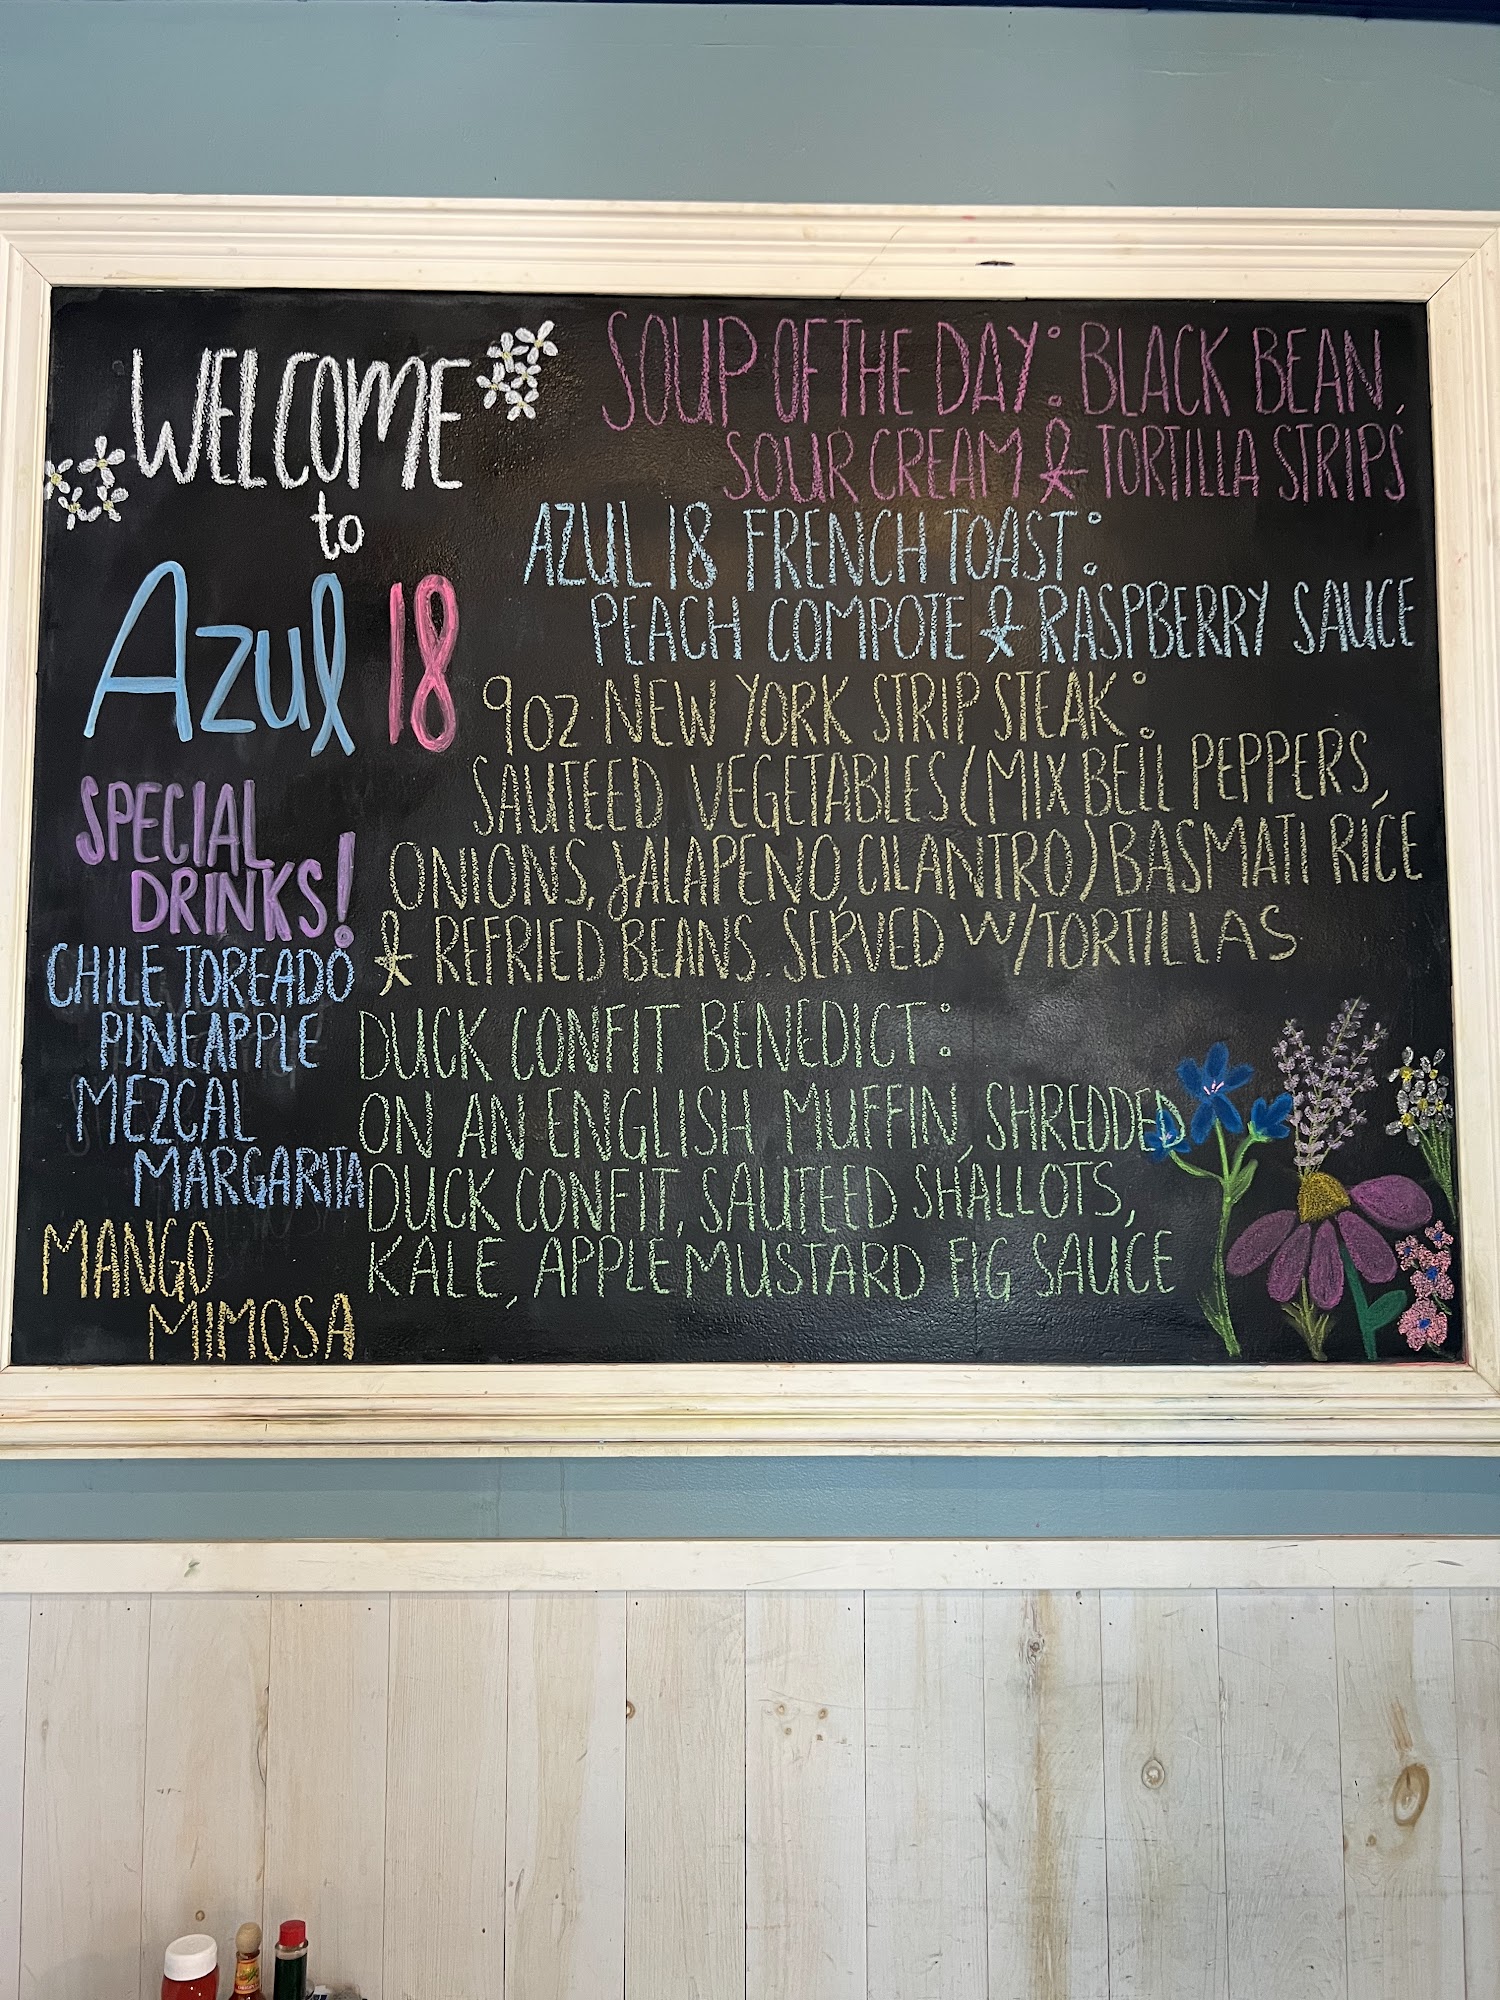 WELCOME
to
Azul 18
SPECIAL
DRINKS!
CHILE TOREADO
PINEAPPLE
MEZCAL
MARGARITA
MANGO
MIMOSA
SOUP OF THE DAY: BLACK BEAN,
SOUR CREAM & TORTILLA STRIPS
AZUL 18 FRENCH TOAST:
PEACH COMPOTE & RASPBERRY SAUCE
9oz NEW YORK STRIP STEAK:
SAUTEED VEGETABLES (MIX BELL PEPPERS,
ONIONS, JALAPENO, CILANTRO) BASMATI RICE
& REFRIED BEANS. SERVED W/TORTILLAS
DUCK CONFIT BENEDICT:
ON AN ENGLISH MUFFIN, SHREDDED
DUCK CONFIT, SAUTEED SHALLOTS,
KALE, APPLE MUSTARD FIG SAUCE